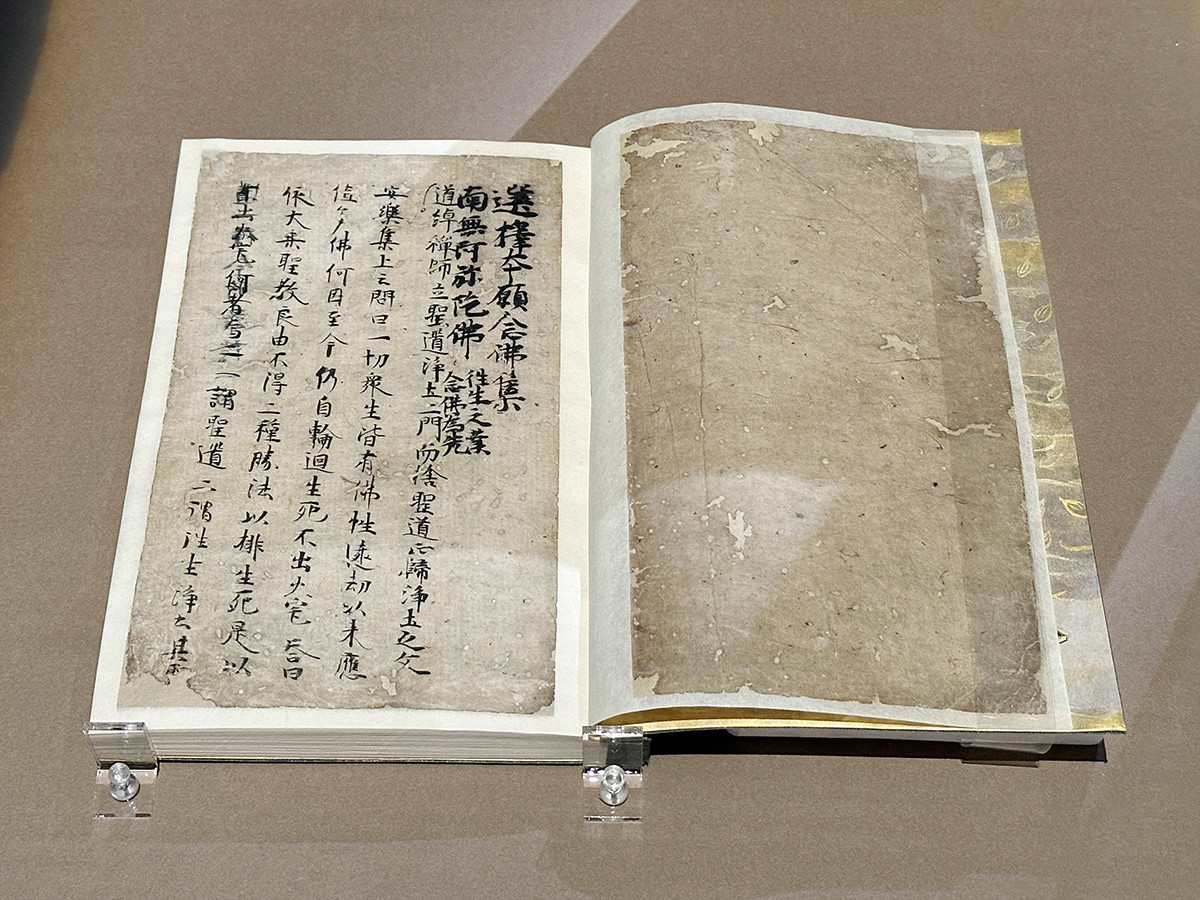 選擇本願念佛集
南無阿弥陀佛 往生之業
念佛為先
道綽禪師立聖道浄土二門而捨聖道正歸浄土之文
安樂集上云問曰一切衆生皆有佛性遠劫以来應
值多佛何因至今仍自輪迴生死不出火宅答曰
依大乗聖教良由不得二種勝法以排生死是以
何者為二一謂聖道二謂往生浄土其